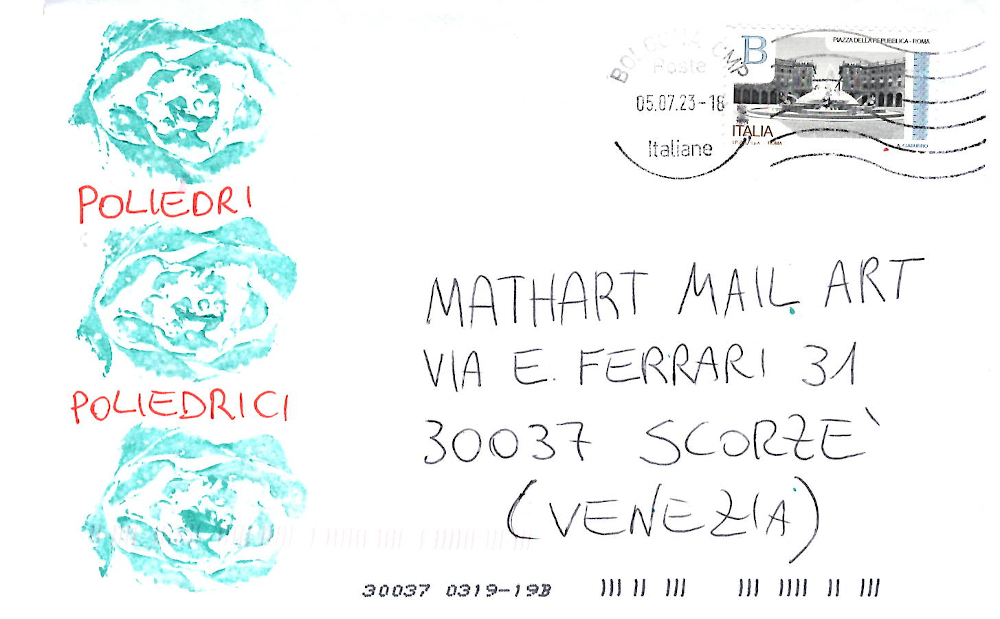 BOLOGNA CMP
Poste
05.07.23-18
Italiane
B
PIAZZA DELLA REPUBBLICA - ROMA
ITALIA
POLIEDRI
POLIEDRICI
MATHART MAIL ART
VIA E. FERRARI 31
30037 SCORZE`
(VENEZIA)
30037 0319-19B